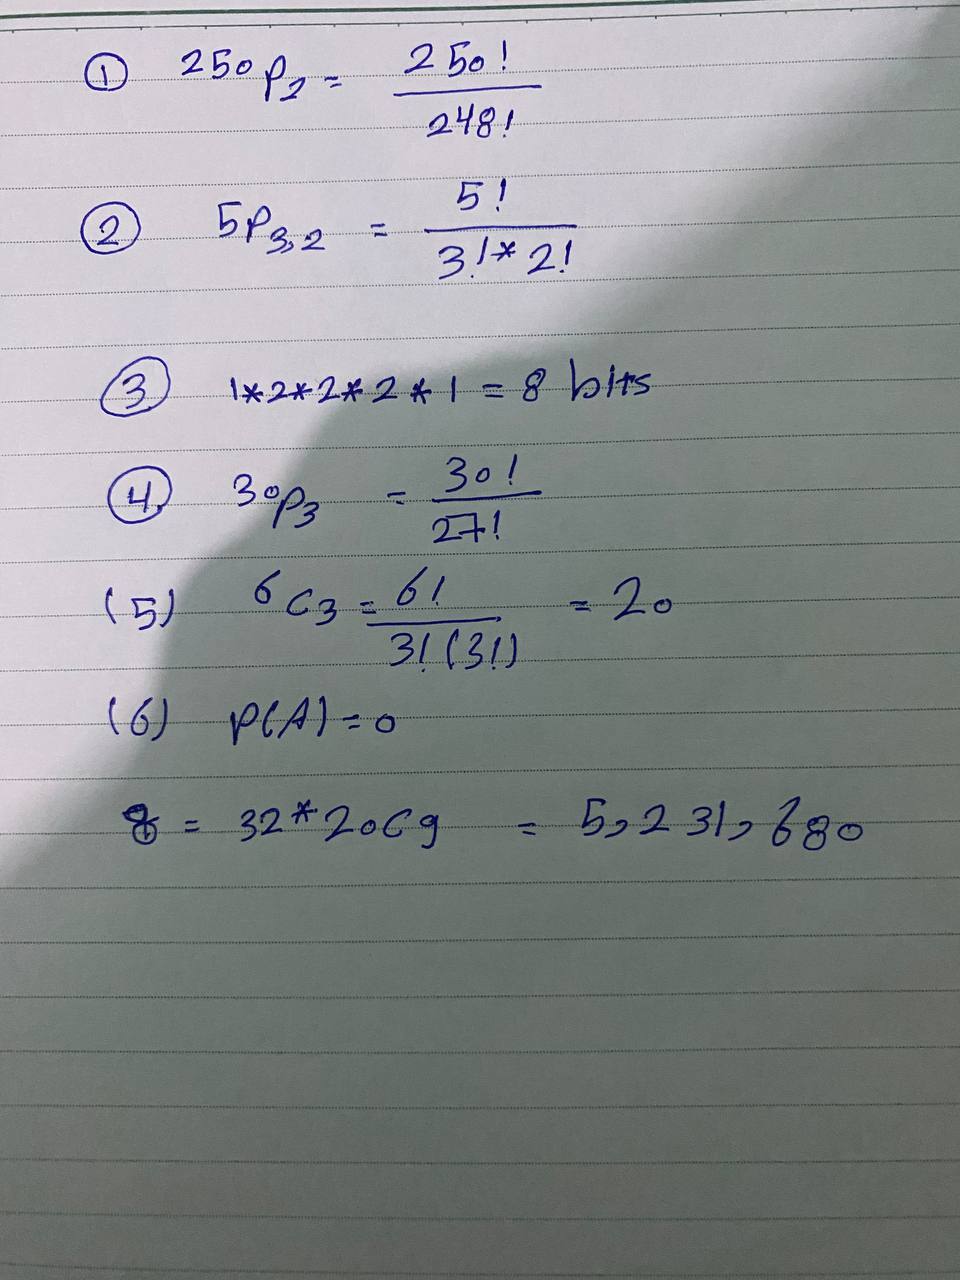 ① 250P2 = 250! / 248!
② 5P3,2 = 5! / 3!*2!
③ 1*2*2*2*1 = 8 bits
④ 30P3 = 30! / 27!
(5) 6C3 = 6! / 3!(3!) = 20
(6) P(A) = 0
8 = 32*20C9 = 5,231,680